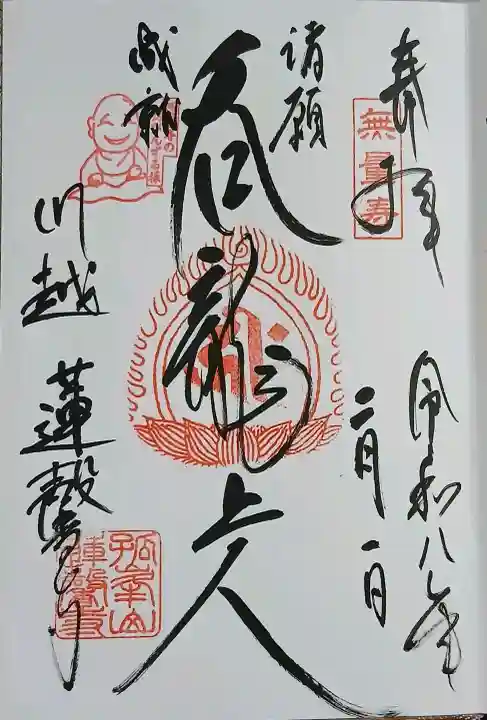 奉拝
無量寿
令和八年
二月一日
諸願
成就
呑龍上人
川越
蓮馨寺
孤峯山
蓮馨寺